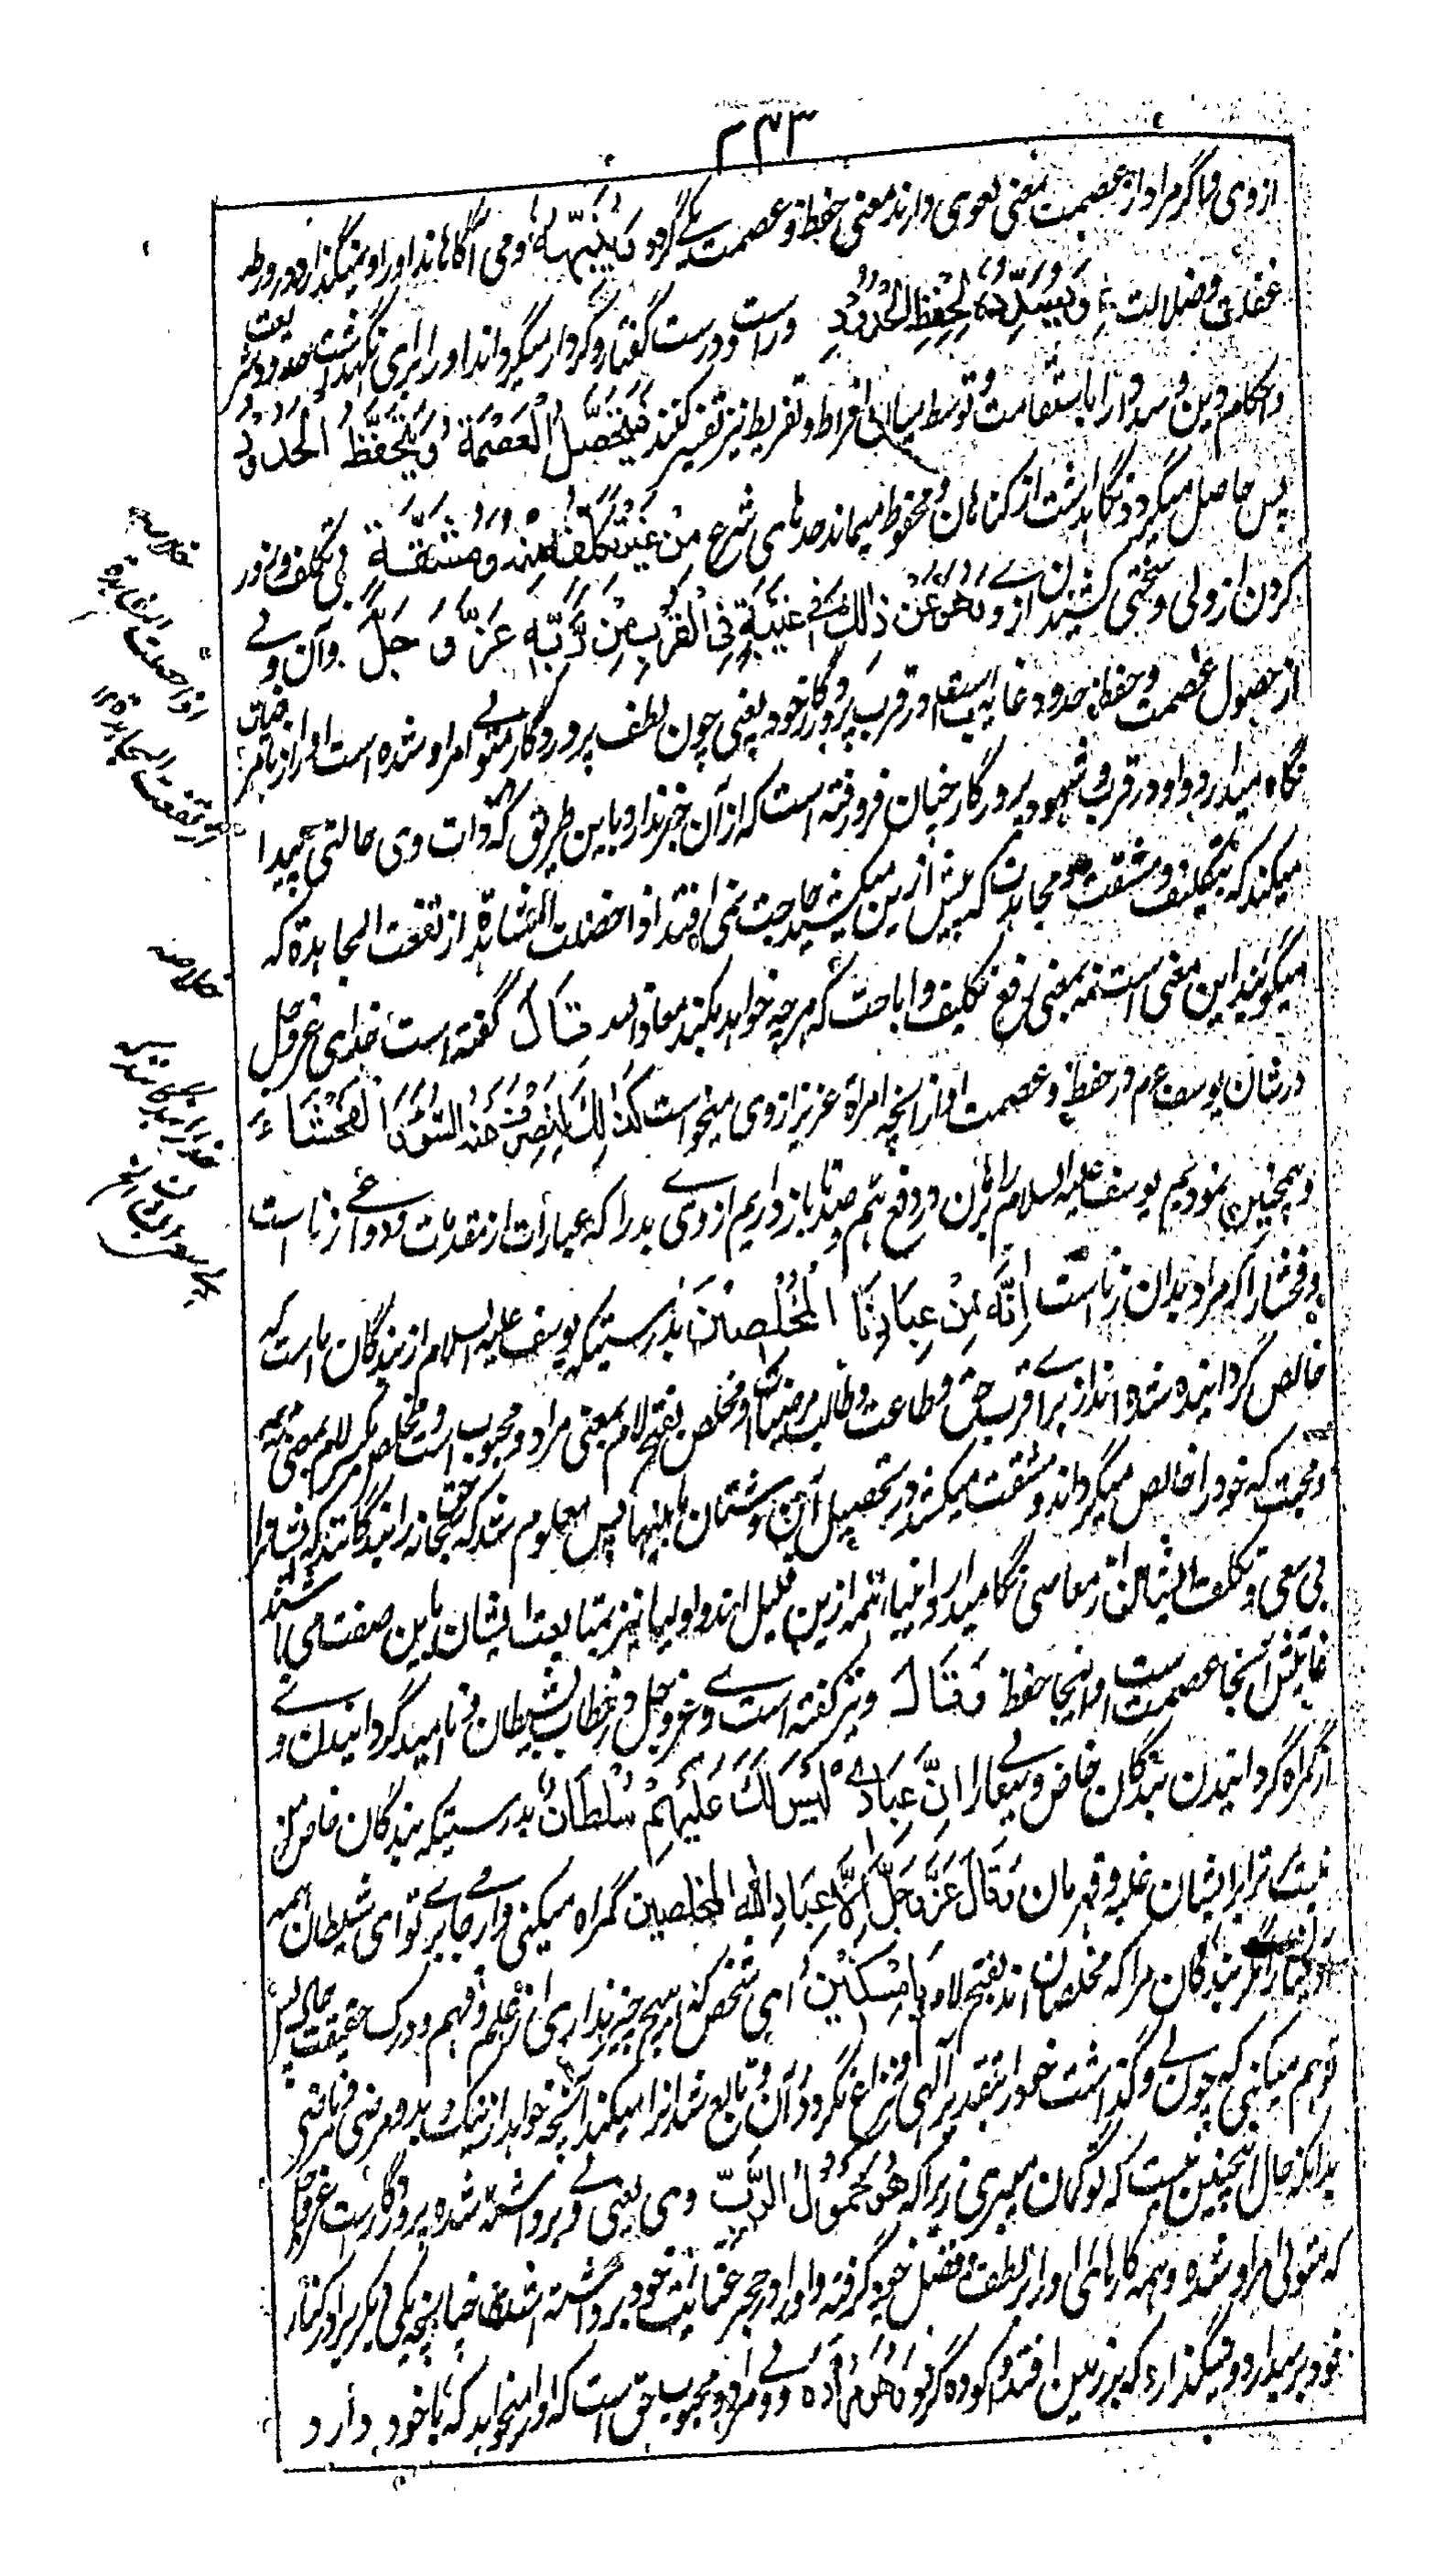 ۳۴۳
از وی و اگر مراد از عصمت معنی لغوی دارند معنی حفظ و عصمت یکی گردد وَيُنَبِّهُهُ و می آگاهاند او را و نمیگذارد در ورطه
غفلت و ضلالت وَيُسَدِّدُهُ لِحِفْظِ الْحُدُودِ و راست و درست گفتار و کردار میگرداند او را برای نگهداشت حدود شریعت
و احکام دین و سداد را باستقامت و توسط میان افراط و تفریط نیز تفسیر کنند فَيَتَحَصَّلُ الْعِصْمَةُ وَيَتَحَفَّظُ الْحُدُودُ
پس حاصل میگردد نگاهداشت از گناهان و محفوظ میماند حدهای شرع مِنْ غَيْرِ تَكَلُّفٍ مِنْهُ وَمَشَقَّةٍ بی تکلف و زور
کردن از ولی و سختی کشیدن از وی وَهُوَ عَنْ ذٰلِكَ فِي غَيْبَةٍ فِي الْقُرْبِ مِنْ رَبِّهِ عَزَّ وَجَلَّ و آن ولی
از حصول عصمت و حفظ حدود غائب است در قرب پروردگار خود یعنی چون لطف پروردگار متولی امر او شده است او را از نامرضیات
نگاه میدارد و او در قرب و شهود پروردگار چنان فرو رفته است که از آن خبر ندارد باین طریق که ذات وی حالتی پیدا
میکند که بتکلیف و مشقت و مجاهدت که پیش ازین میکشید حاجت نمی افتد اذا حصلت المشاهدة ارتفعت المجاهدة که
میگویند این معنی است نه بمعنی رفع تکلیف و اباحت که هر چه خواهد بکند معاذ الله قَالَ گفته است خدای عز و جل
در شان یوسف ع م در حفظ و عصمت او از آنچه امراة عزیز از وی میخواست كَذٰلِكَ لِنَصْرِفَ عَنْهُ السُّوءَ وَالْفَحْشَاءَ
و همچنین نمودیم یوسف علیه السلام را برهان در دفع هم و قصد تا باز داریم از وی بد را که عبارت از مقدمات و دواعی زنا است
و فحشا را که مراد بدان زناست اِنَّهُ مِنْ عِبَادِنَا الْمُخْلَصِينَ بدرستیکه یوسف علیه السلام از بندگان ما است که
خالص گردانیده شده اند از برای قرب حق و طاعت و طالب مرضیات او مخلص بفتح لام بمعنی مراد و محبوب است و مخلص بکسر لام بمعنی مرید
و محب که خود را خالص میگرداند و مشقت میکشد در تحصیل آن شتان ما بینهما پس معلوم شد که حق سبحانه را بندگانند که ایشانرا
بی سعی و تکلف ایشان از معاصی نگاه میدارد و انبیا همه ازین قبیل اند و اولیا نیز بمتابعت ایشان باین صفت می باشند
غایتش آنجا عصمت است و اینجا حفظ وَقَالَ و نیز گفته است وی عز و جل در خطاب شیطان و ناامید گردانیدن وی
از گمراه گردانیدن بندگان خاص وی تعالی را اِنَّ عِبَادِي لَيْسَ لَكَ عَلَيْهِمْ سُلْطَانٌ بدرستیکه بندگان خاص من
نیست ترا بر ایشان غلبه و قهرمان وَقَالَ عَزَّ وَجَلَّ اِلَّا عِبَادَ اللهِ المخلصين گمراه میکنی و از جا می بری تو ای شیطان همه
مگر بندگان مرا که مخلصان اند بفتح لام يَا مِسْكِينُ ای شخص که هیچ چیز نداری از علم و فهم و درک حقیقت حال پس
توهم میکنی که چون ولی گذاشت خود را بتقدیر الهی و نزاع نکرد در آن و تابع شد آنرا میکند آنچه خواهد از نیک و بد و مرضی و نامرضی
بدانکه حال اینچنین نیست که تو گمان میبری زیرا که هُوَ مَحْمُولُ الرَّبِّ وی یعنی ولی برداشته شده پروردگار است عز و جل
که متولی امر او شده و همه کارهای او را از لطف و فضل خود گرفته و او را در حجر عنایت خود برداشته شده چنانچه یکی دیگر را در کنار
خود بر میدارد و نمیگذارد که بر زمین افتد و آلوده گردد وَهُوَ مُرَادُهُ و وی مراد و محبوب حق است که او را میخواهد که با خود دارد
خلاصه
اذا حصلت المشاهدة
ارتفعت المجاهدة
خلاصه
خدا را بندگانند که